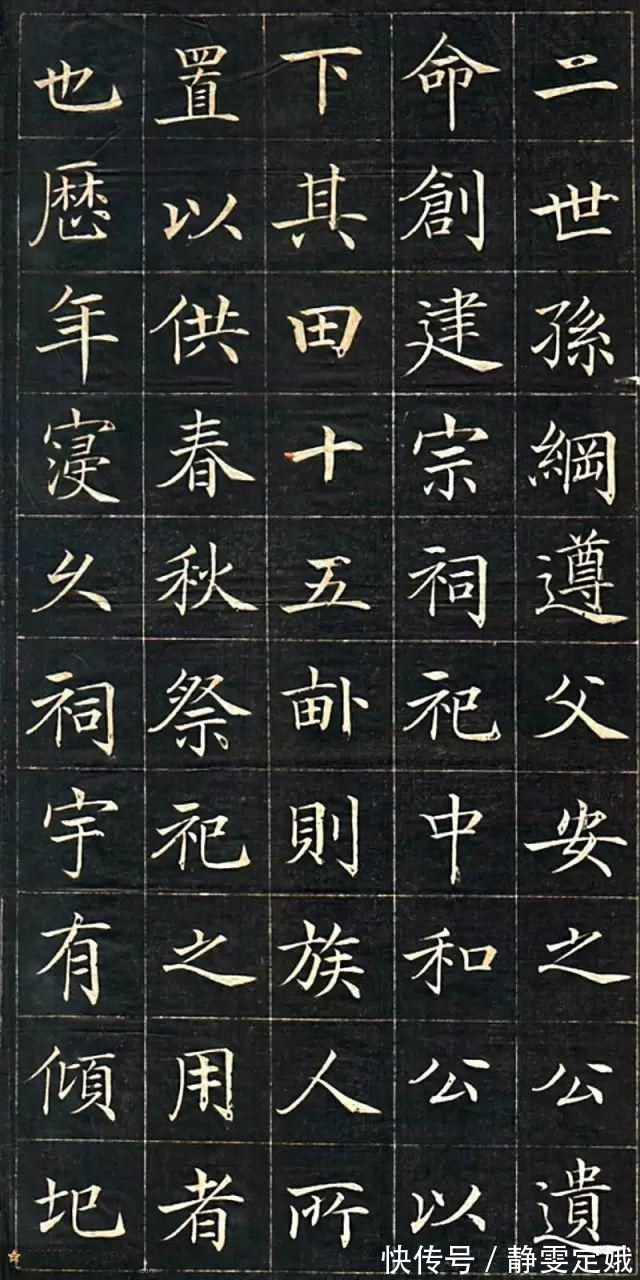 二世孫綱遵父安之公遺
命創建宗祠祀中和公以
下其田十五畝則族人所
置以供春秋祭祀之用者
也歷年寖久祠宇有傾圯
快传号 / 静雯定娥